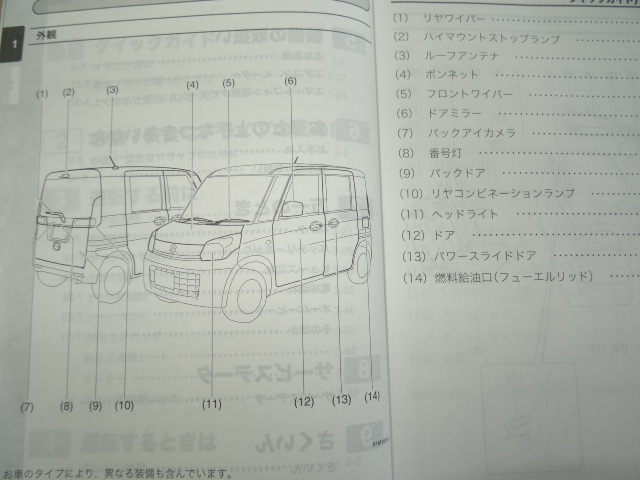 1
外観
(1)
(2)
(3)
(4)
(5)
(6)
(7)
(8)
(9)
(10)
(11)
(12)
(13)
(14)
お車のタイプにより、異なる装備も含んでいます。
クイックガイド/
(1) リヤワイパー
(2) ハイマウントストップランプ
(3) ルーフアンテナ
(4) ボンネット
(5) フロントワイパー
(6) ドアミラー
(7) バックアイカメラ
(8) 番号灯
(9) バックドア
(10) リヤコンビネーションランプ
(11) ヘッドライト
(12) ドア
(13) パワースライドドア
(14) 燃料給油口(フューエルリッド)